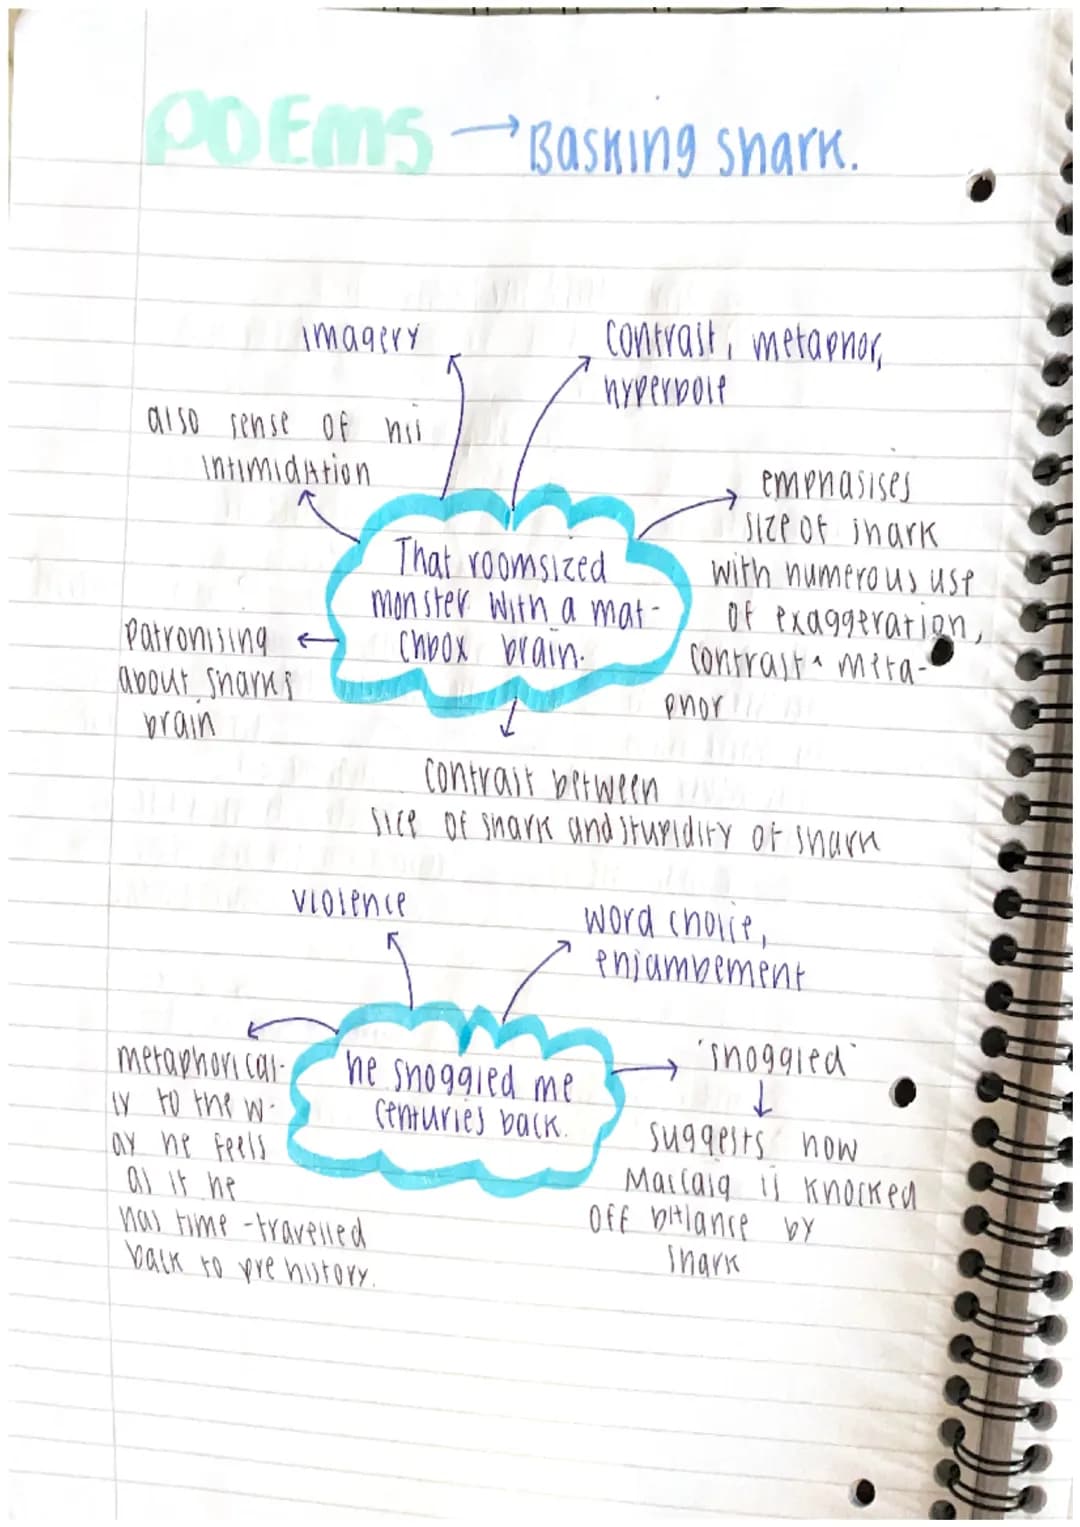 POEMS → Basking shark.
imagery
contrast, metaphor,
hyperbole
also sense of his
intimidation
emphasises
size of shark
with numerous use
of exaggeration,
contrast + meta-
phor
That roomsized
monster with a mat-
chbox brain.
Patronising
about sharks
brain
contrast between
size of shark and stupidity of shark
violence
word choice,
enjambement
metaphorical-
ly to the w-
ay he feels
as if he
has time-travelled
back to pre history.
he shoggled me
centuries back.
'shoggled'
↓
suggests how
Maccaig is knocked
off balance by
shark